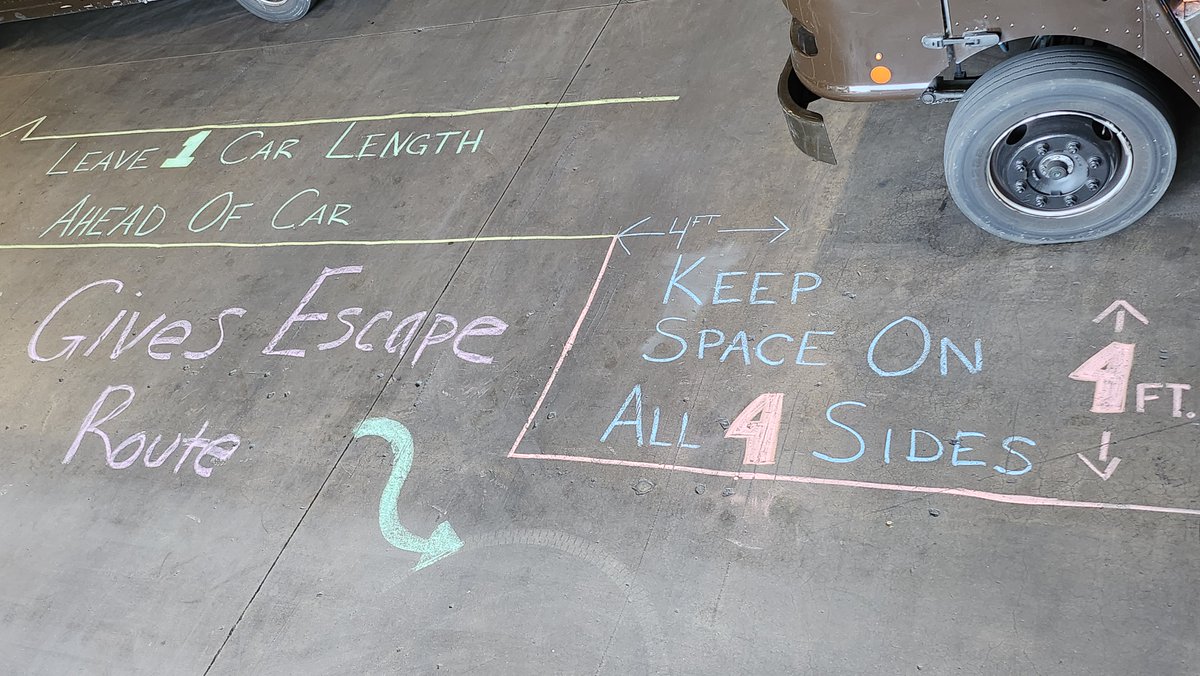 LEAVE 1 CAR LENGTH
AHEAD OF CAR
Gives Escape
Route
4FT
KEEP
SPACE ON
ALL 4 SIDES
4FT.